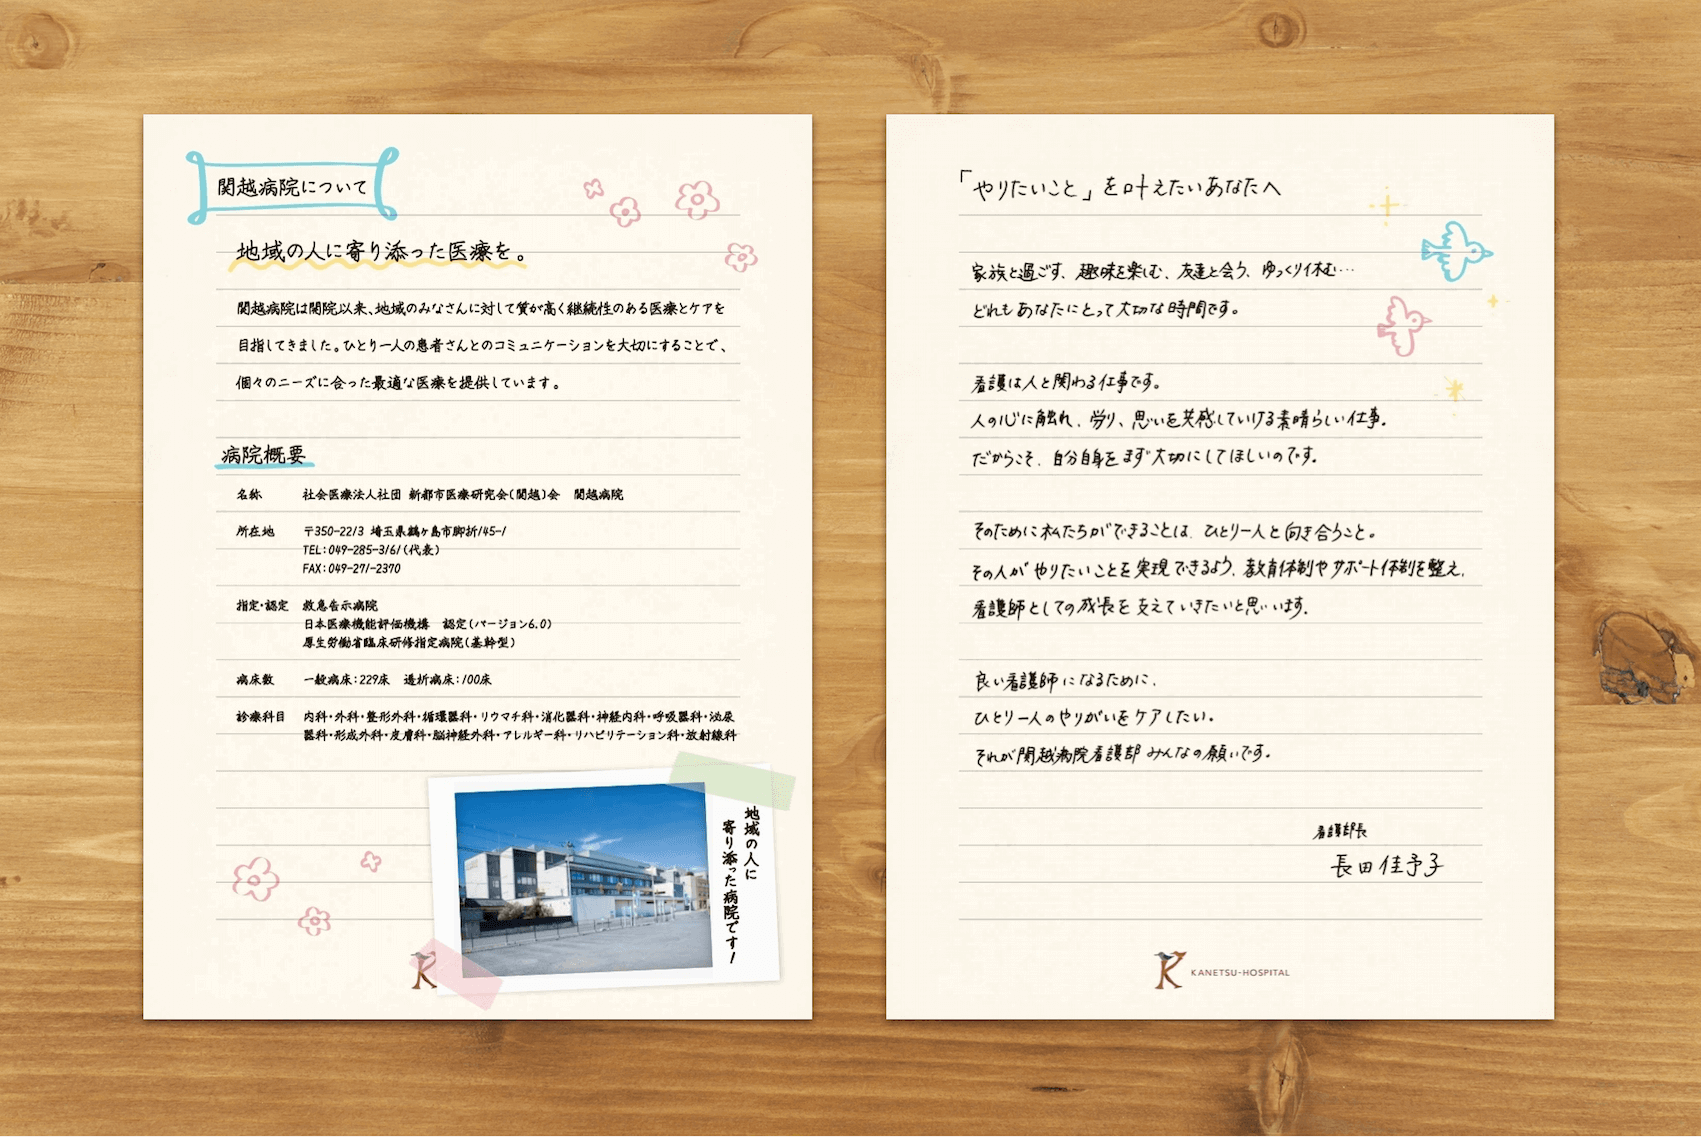 関越病院について
地域の人に寄り添った医療を。
関越病院は開院以来、地域のみなさんに対して質が高く継続性のある医療とケアを
目指してきました。ひとり一人の患者さんとのコミュニケーションを大切にすることで、
個々のニーズに合った最適な医療を提供しています。
病院概要
名称 社会医療法人社団 新都市医療研究会〔関越〕会 関越病院
所在地 〒350-2213 埼玉県鶴ヶ島市脚折145-1
TEL:049-285-3161(代表)
FAX:049-271-2370
指定・認定 救急告示病院
日本医療機能評価機構 認定(バージョン6.0)
厚生労働省臨床研修指定病院(基幹型)
病床数 一般病床:229床 透析病床:100床
診療科目 内科・外科・整形外科・循環器科・リウマチ科・消化器科・神経内科・呼吸器科・泌尿
器科・形成外科・皮膚科・脳神経外科・アレルギー科・リハビリテーション科・放射線科
地域の人に
寄り添った病院です!
K
「やりたいこと」を叶えたいあなたへ
家族と過ごす、趣味を楽しむ、友達と会う、ゆっくり休む…
どれもあなたにとって大切な時間です。
看護は人と関わる仕事です。
人の心に触れ、労り、思いを共感していける素晴らしい仕事。
だからこそ、自分自身をまず大切にしてほしいのです。
そのために私たちができることは、ひとり一人と向き合うこと。
その人がやりたいことを実現できるよう、教育体制やサポート体制を整え、
看護師としての成長を支えていきたいと思います。
良い看護師になるために、
ひとり一人のやりがいをケアしたい。
それが関越病院看護部みんなの願いです。
看護部長
長田佳予子
K KANETSU-HOSPITAL